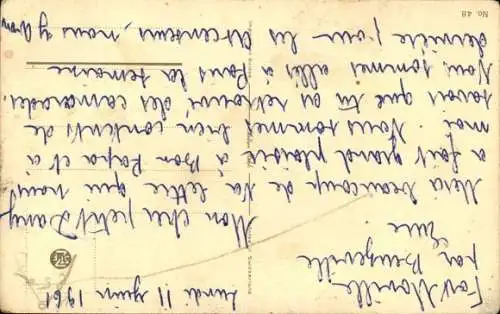 Lundi 11 Juin 1961
Fort Moville
par Beuzeville
Eure
Mon cher petit Dany
Merci beaucoup de ta lettre qui nous
a fait grand plaisir à Bon Papa et à
moi. Nous sommes bien contents de
savoir que tu as retrouvé des camarades.
Nous sommes allés à Paris la semaine
dernière pour les Ascenseurs, nous y avons
No. 48